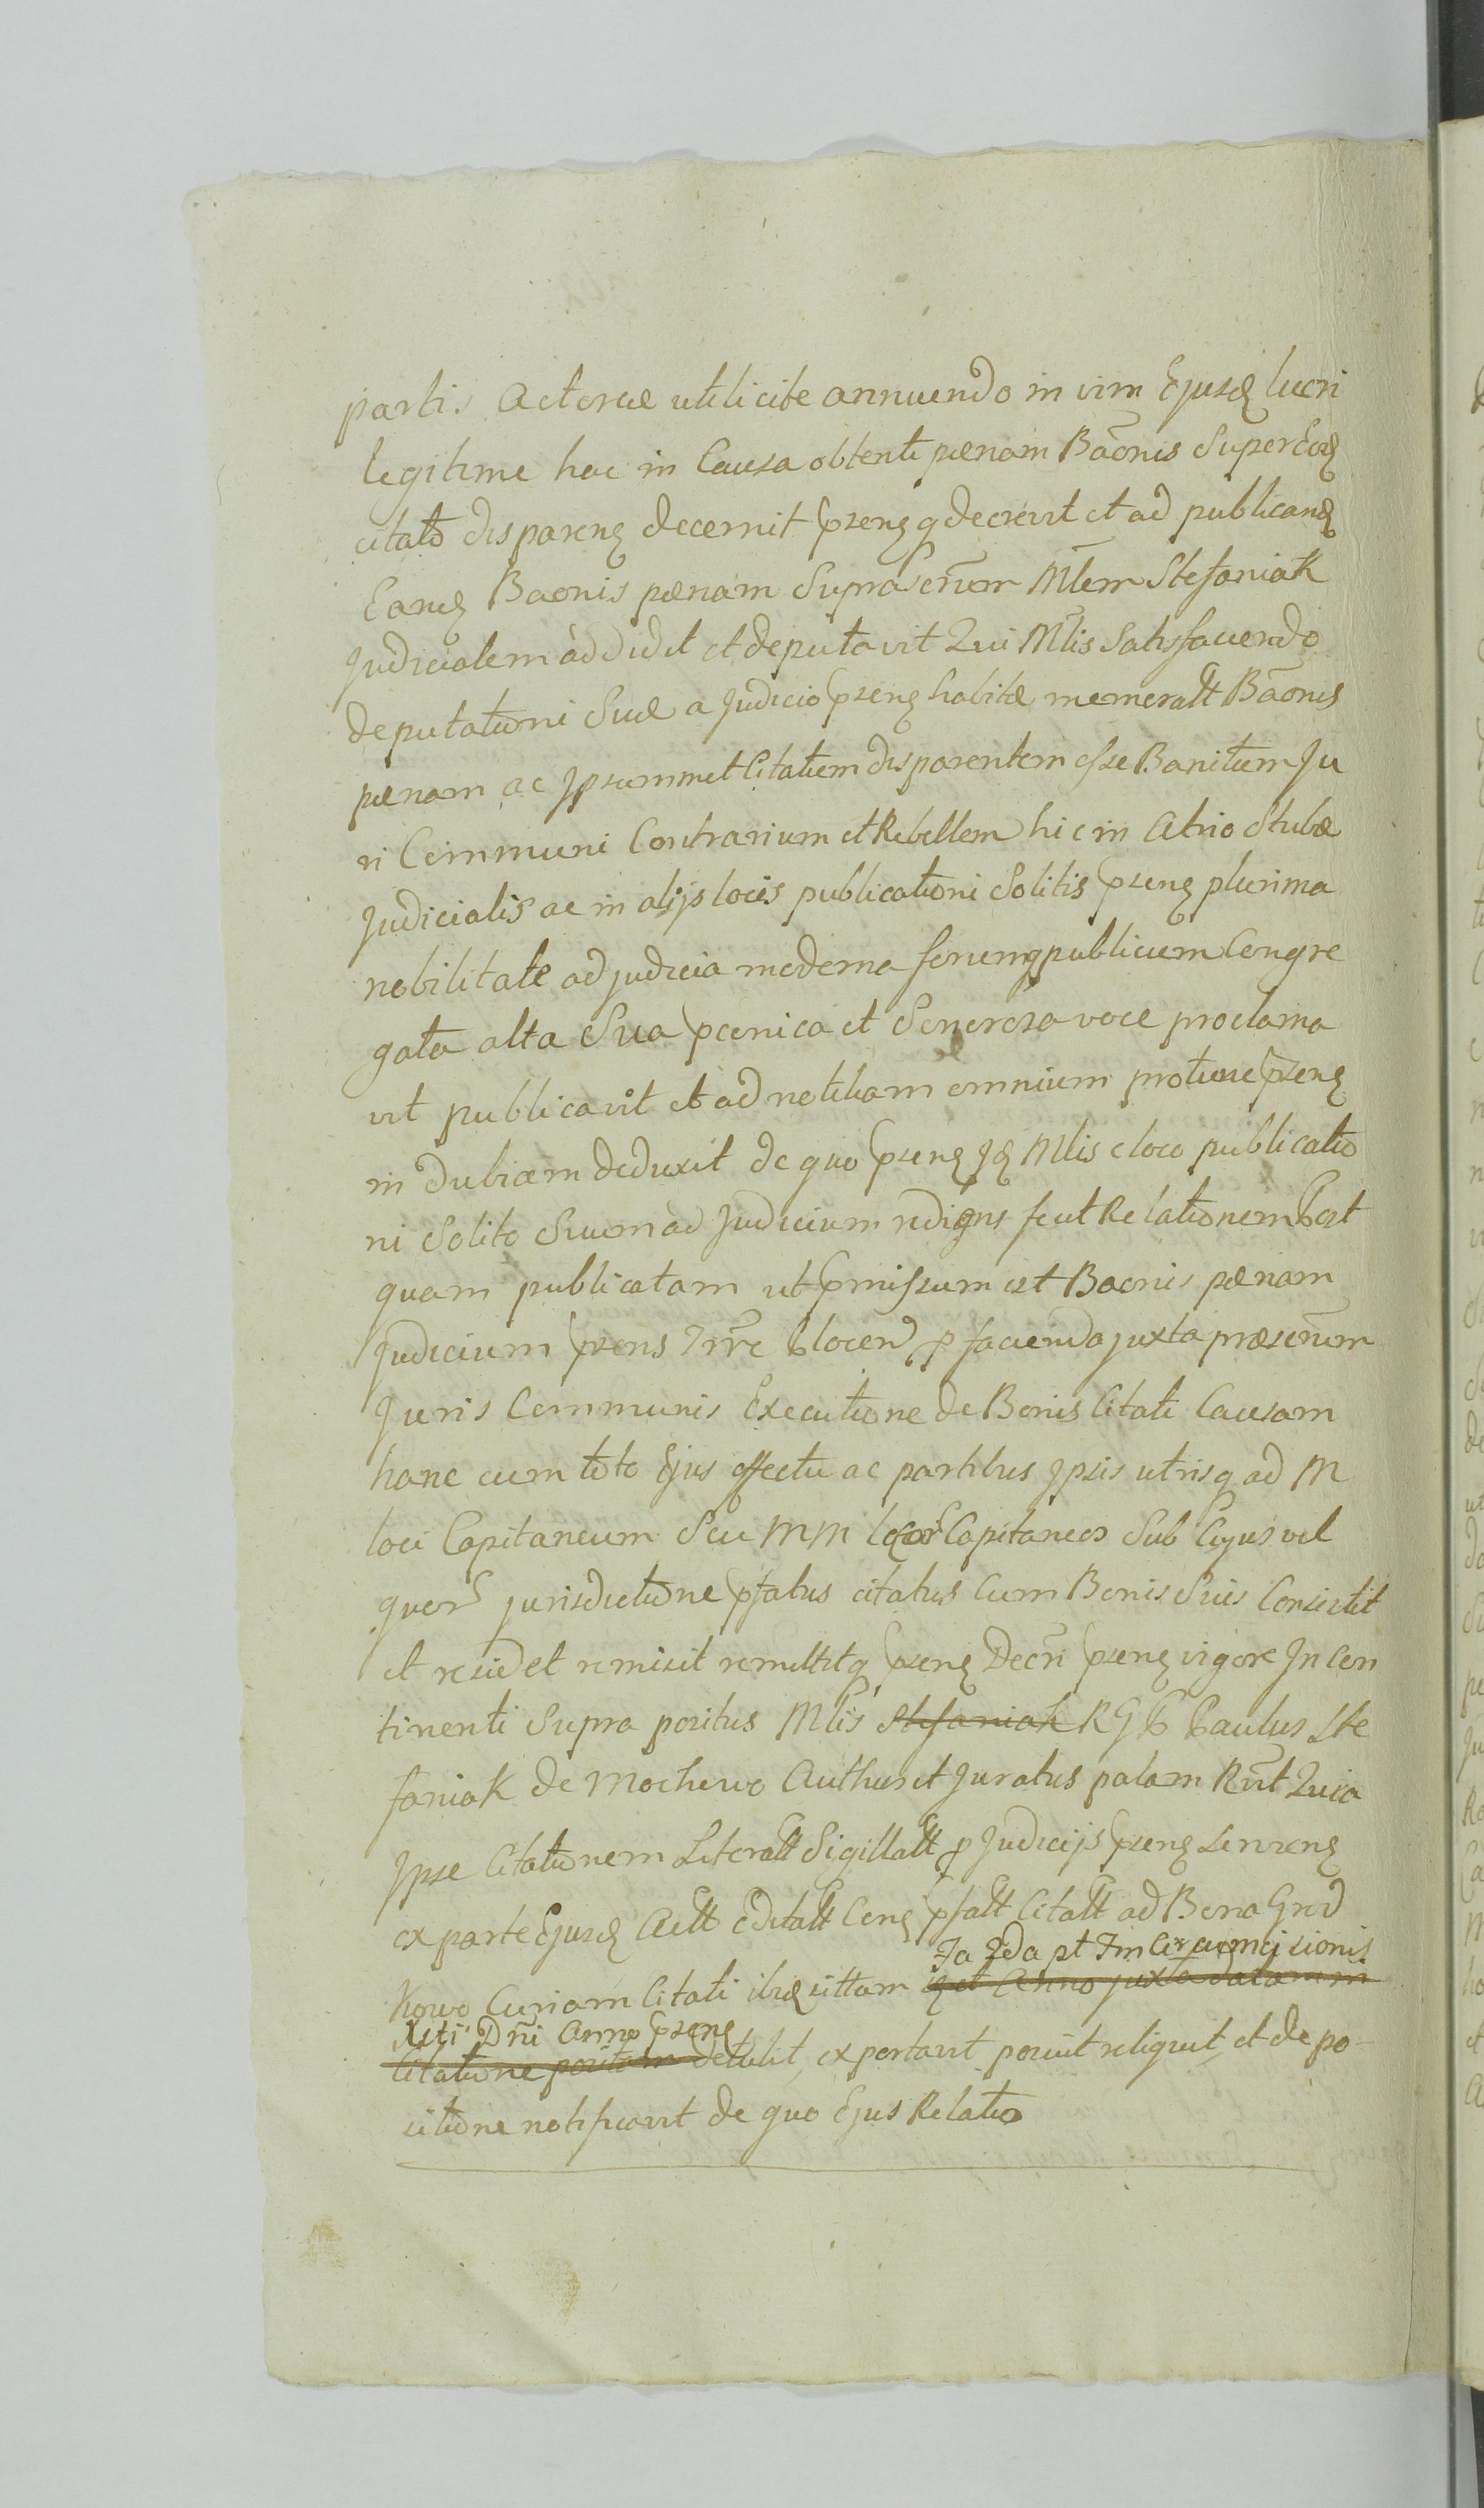 partis Actoreæ uti licite annuendo in vim Ejusd lucri
legitime hac in Causa obtenti pænam Bãonis Super Eod
citato disparen decernit psenq decrevit et ad publicand
Eand Baonis pænam Suprascrũm Mlem Stefaniak
Judicialem addidit et deputavit Qui Mlis Satisfaciendo
deputationi Suæ a Judicio psen habitæ memoratt Bãonis
pænam ac Ipsummet Citatum disparentem esse Banitum Ju
ri Communi Contrarium et Rebellem hic in Atrio Stubæ
Judicialis ac in alijs locis publicationi Solitis psen plurima
nobilitate ad judicia moderna forumq publicum Congre
gata alta Sua pconica et Sonorosa voce proclama
vit publicavit et ad notitiam omnium protunc psen
in dubiam deduxit de quo psen Id Mlis e loco publicatio
ni Solito Suum ad Judicium rediens fecit Relationem Post
quam publicatam ut pmissum est Baonis pænam
Judicium psens Trre p facienda juxta præscrũm
Juris Communis Executione de Bonis Citati Causam
hanc cum toto Ejus effectu ac partibus Ipsis utrisq ad M
loci Capitaneum Seu MM locor Capitaneos Sub Cujus vel
quor jurisdictione pfatus citatus Cum Bonis Suis Consistit
et residet remisit remittitq psen Decri psen vigore In Con
tinenti Supra positus Mlis Stefaniak R G P Paulus Ste
faniak de Mochowo Authus et Juratus palam Rvit Quia
Ipse Citationem Literatt Sigillatt p Judicijs psen
ex parte Ejusd Actt editatt Con pfatt Citatt ad Bona Grod
Fa 2da pt Fm Circumcisionis
Kowo Curiam Citati ibid sittam et Anno juxta datam in
Xsti Dñi Anno psen
Citatione positam detulit, exportavit posuit reliquit et de po-
sitione notificavit de quo Ejus Relatio